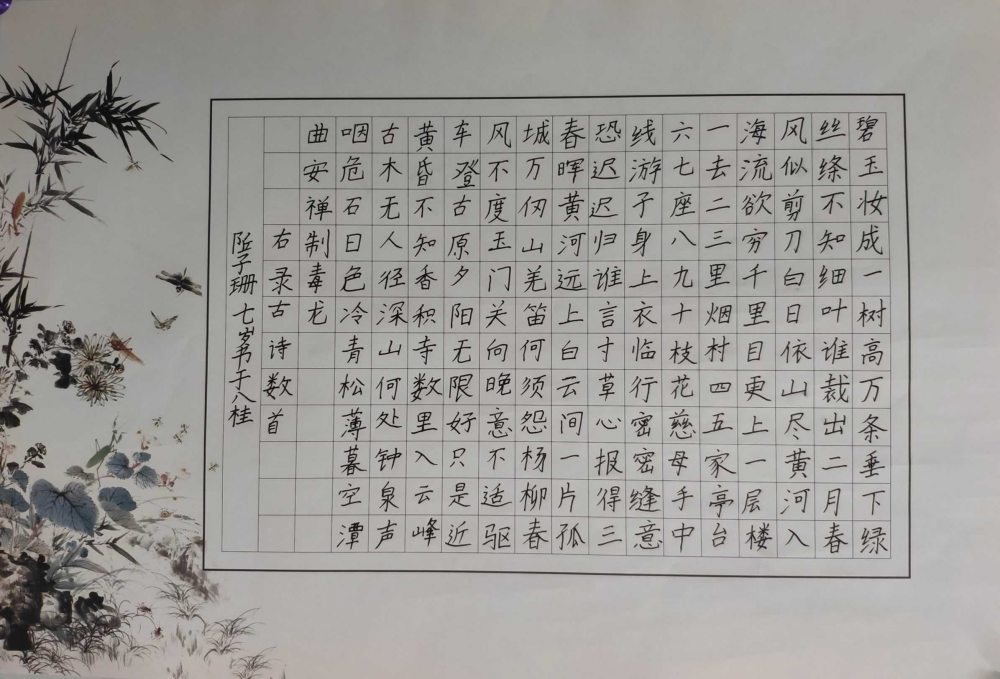 碧玉妆成一树高万条垂下绿
丝绦不知细叶谁裁出二月春
风似剪刀白日依山尽黄河入
海流欲穷千里目更上一层楼
一去二三里烟村四五家亭台
六七座八九十枝花慈母手中
线游子身上衣临行密密缝意
恐迟迟归谁言寸草心报得三
春晖黄河远上白云间一片孤
城万仞山羌笛何须怨杨柳春
风不度玉门关向晚意不适驱
车登古原夕阳无限好只是近
黄昏不知香积寺数里入云峰
古木无人径深山何处钟泉声
咽危石日色冷青松薄暮空潭
曲安禅制毒龙
右录古诗数首
子珊七岁书于八桂